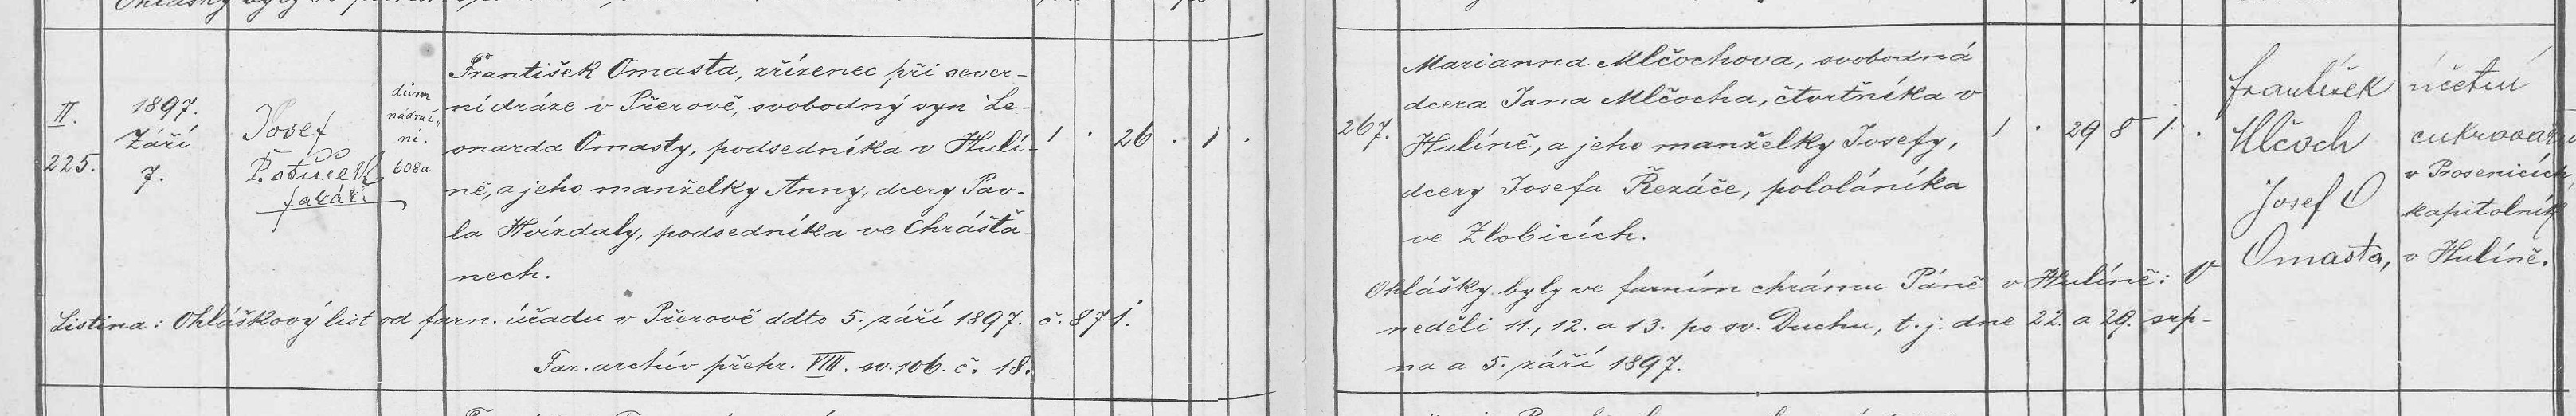 II.
225.
1897.
Září
7.
Josef
farář
dům
nádraž„
ní.
608a
František Omasta, zřízenec při sever-
ní dráze v Přerově, svobodný syn Le-
onarda Omasty, podsedníka v Hulí-
ně, a jeho manželky Anny, dcery Pav-
la Hvízdaly, podsedníka ve Chrášťa-
nech.
1 . 26 . 1 .
Listina: Ohláškový list od farn. úřadu v Přerově ddto 5. září 1897. č. 871.
Far. archív přehr. VIII. sv. 106. č. 18.
267.
Marianna Mlčochova, svobodná
dcera Jana Mlčocha, čtvrtníka v
Hulíně, a jeho manželky Josefy,
dcery Josefa Řezáče, pololáníka
ve Zlobicích.
1 . 29 8 1 .
Ohlášky byly ve farním chrámu Páně v Hulíně: V
neděli 11., 12. a 13. po sv. Duchu, t. j. dne 22. a 29. srp-
na a 5. září 1897.
František
Mlčoch
Josef
Omasta,
účetní
cukrovaru
v Prosenicích,
kapitolník
v Hulíně.